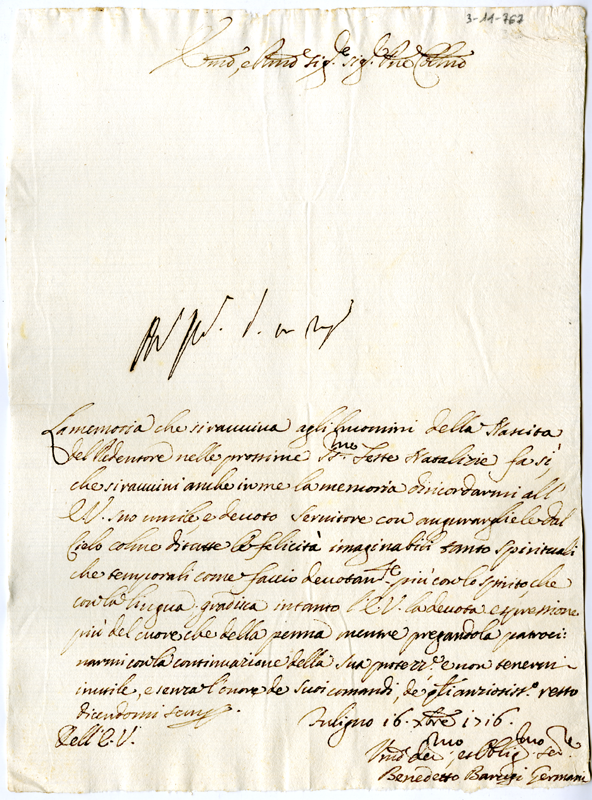 3-11-767
Emo, e Rmo Sig.re Sig.r Pne Colmo
La memoria che si ravviva agli huomini della Nascita
del Redentore nelle prossime SS.me Feste Natalizie fa sì,
che si ravvivi anche in me la memoria di ricordarmi all'
E.V. suo umile e devoto servitore con augurargliele dal
Cielo colme di tutte le felicità imaginabili tanto spirituali
che temporali come faccio devotam.te più con lo spirito, che
con la lingua. gradisca intanto l'E.V. la devota espressione
più del cuore, che della penna mentre pregandola patroci:
narmi con la continuazione della sua protez.e e non tenermi
inutile, e senza l'onore de suoi comandi, de' quali ansiosiss.o resto
dicendomi semp.e
Fuligno 16. Xbre 1716.
Dell'E.V.
Umo dev.mo et Obligmo Ser.re
Benedetto Barugi Germani